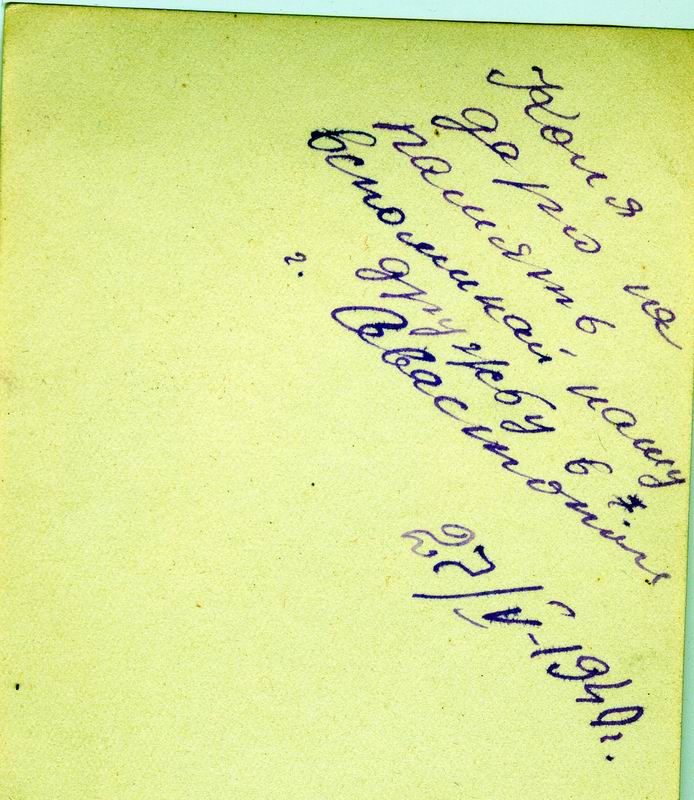 Коля
дарю на
память
вспоминай нашу
дружбу в
г. Севастополе
27/V-1940г.